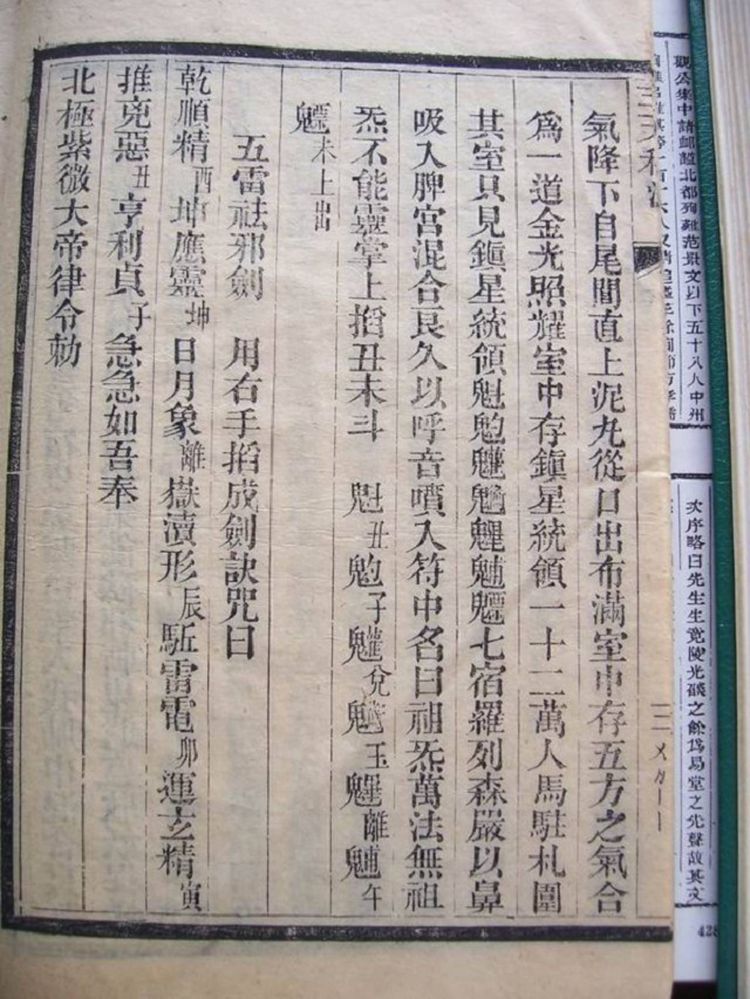 觀公集中請卹謚北都殉難范景文以下五十八人中州
次序略曰先生生竟陵光燄之餘爲易堂之先聲故其文
428
氣降下自尾閭直上泥丸從口出布滿室中存五方之氣合
爲一道金光照耀室中存鎮星統領一十二萬人馬駐札圍
其室只見鎮星統領魁𩲃䰢魓䰡䰢魒七宿羅列森嚴以鼻
吸入脾宮混合良久以呼音噴入符中名曰祖炁萬法無祖
炁不能靈掌上掐丑未斗 魁丑 子 兌 玉 離 午
魒未上出
五雷祛邪劍 用右手掐成劍訣咒曰
乾順精酉坤應靈坤日月象離嶽瀆形辰駈雷電卯運玄精寅
推兇惡丑亨利貞子急急如吾奉
北極紫微大帝律令勅